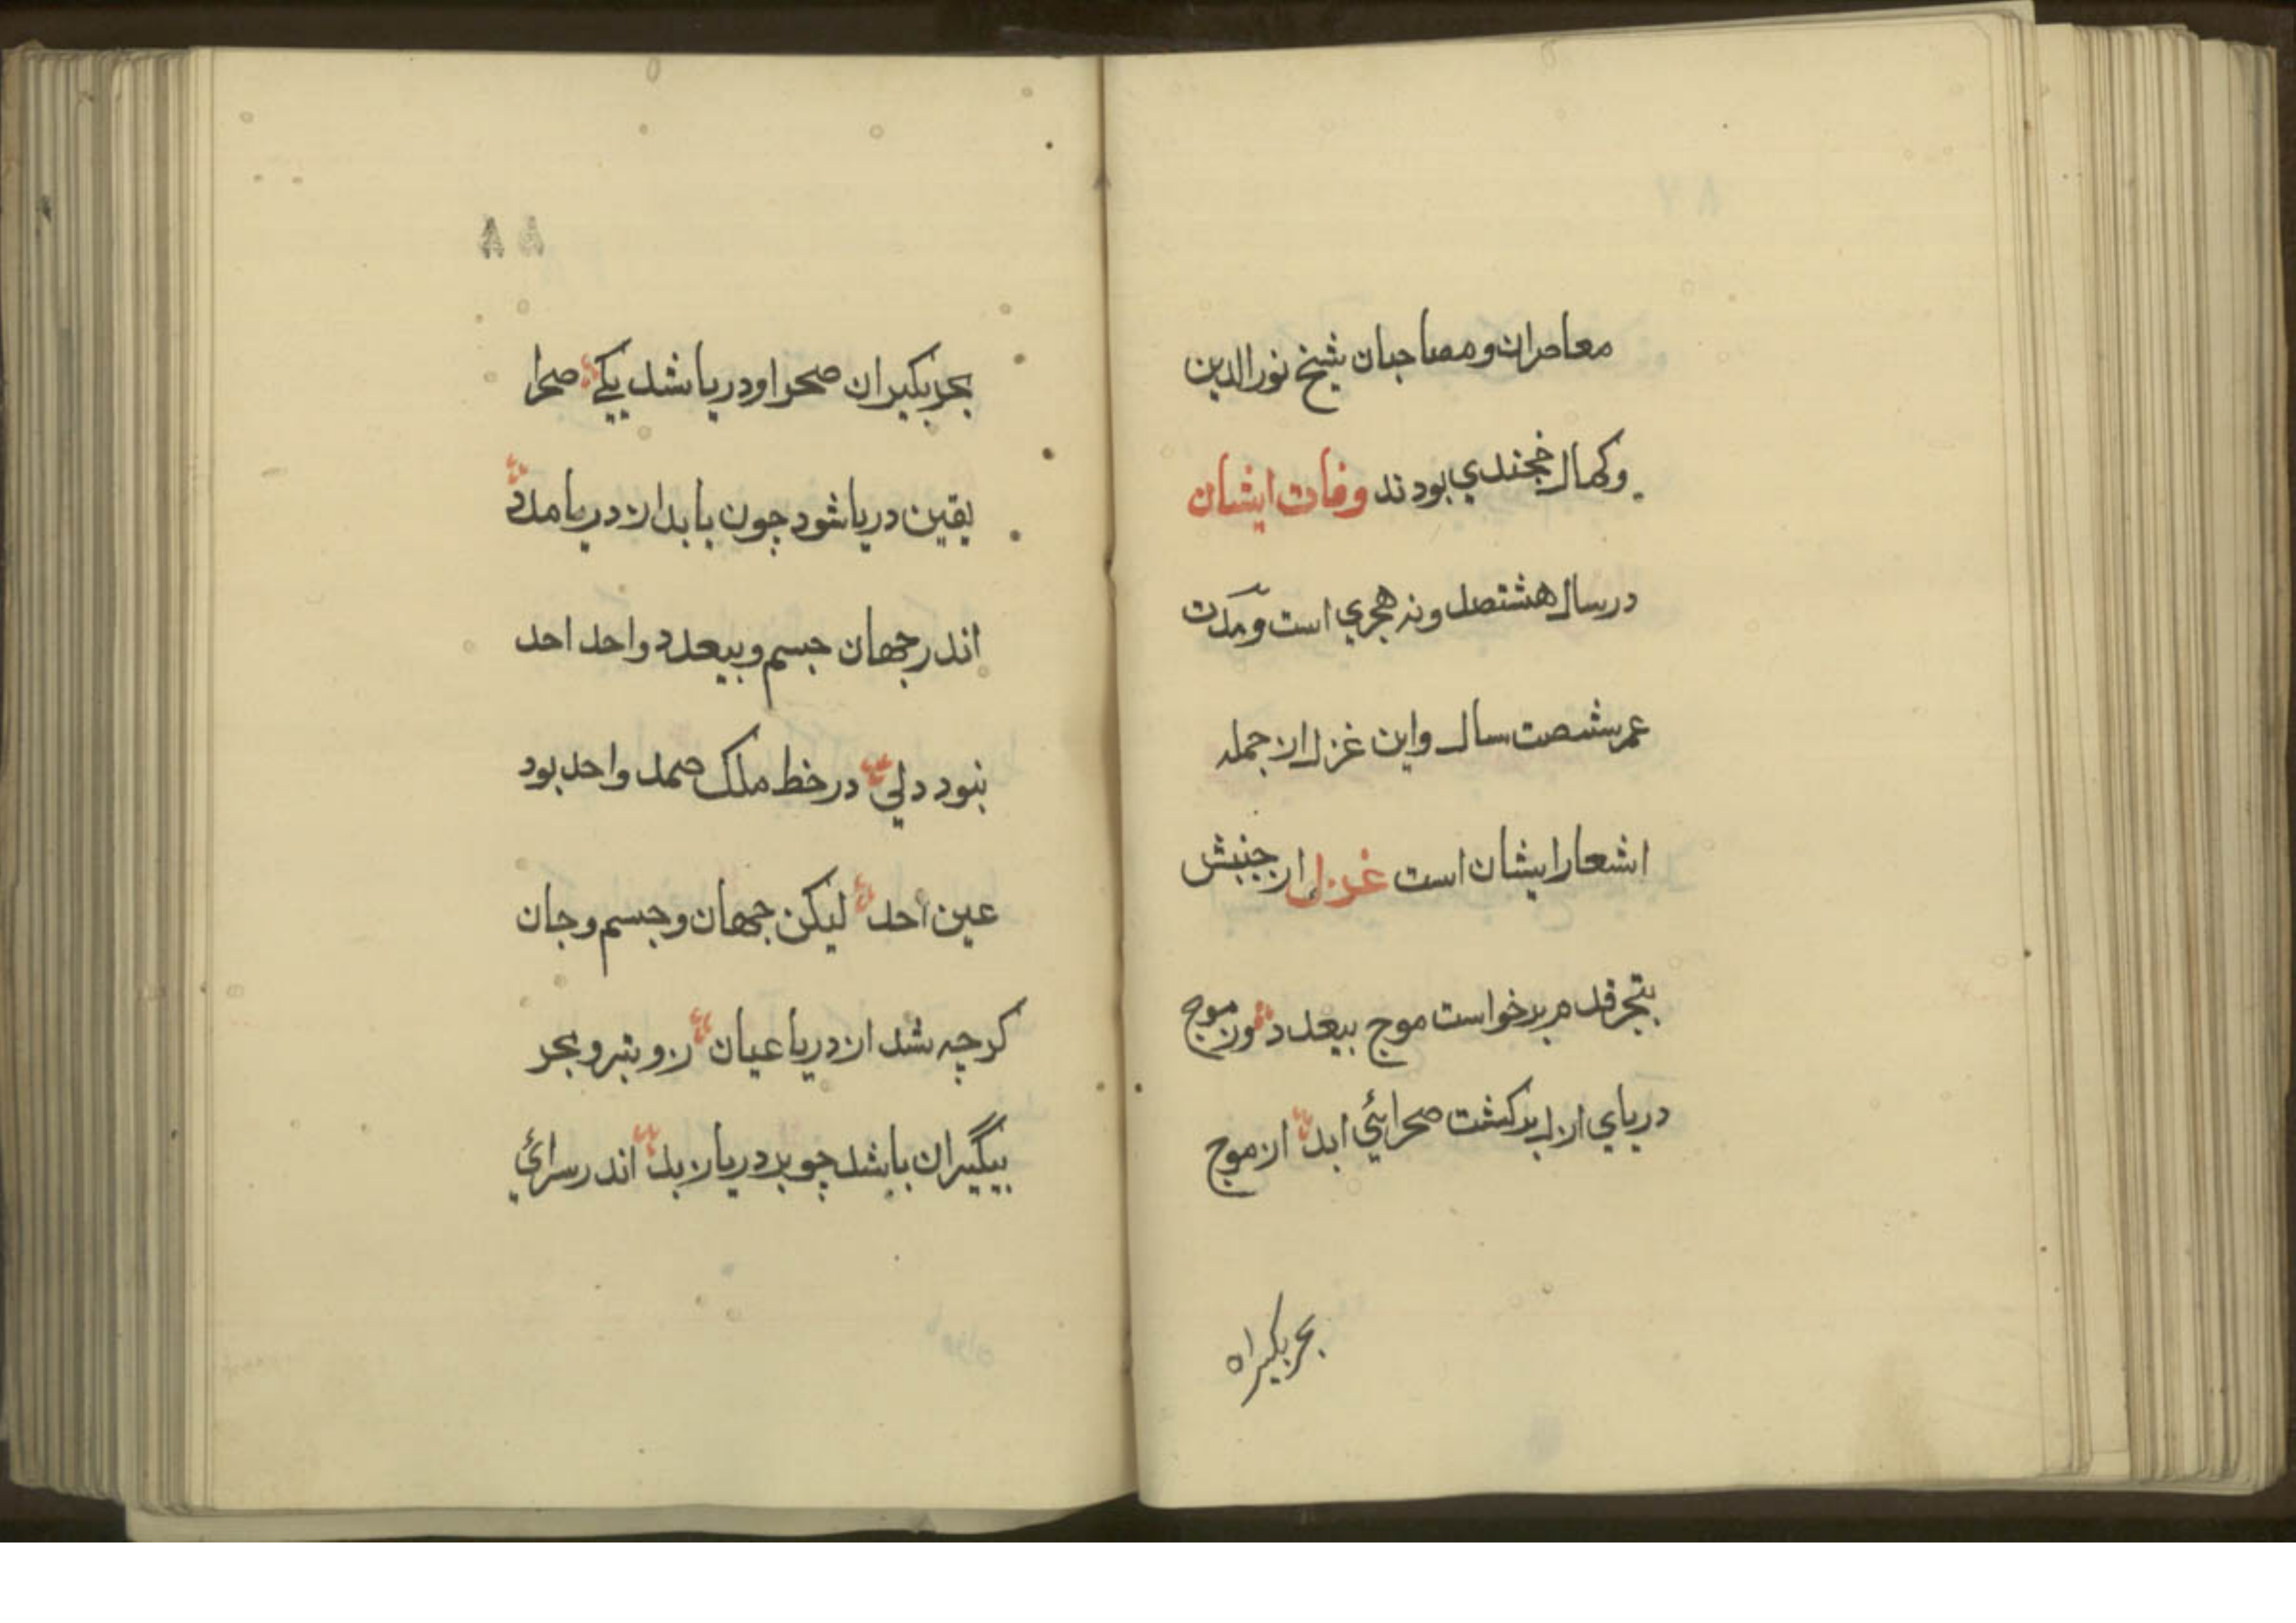 معاصران و مصاحبان شیخ نور الدین
و کمال خجندي بودند وفات ایشان
در سال هشتصد و نه هجري است و مدّت
عمر شصت سال و این غزل از جمله
اشعار ایشان است غزل از جنبش
بحر قدم برخواست موج بیعدد وز موج
دریاي ازل بر کشت صحرائي ابد از موج
بحر بکیران
۸۸
بحر بکیران صحرا و دریا شد یکے صحرا
یقین دریا شود چون یابد از دریا مدد
اندر جهان جسم و بیعدد واحد احد
نبود دلي در خط ملک صمد واحد بود
عین احد لیکن جهان و جسم و جان
کرچه شد از دریا عیان زو بر و بحر
بیگیران باشد چو بر دریا زبد اندر سرائي